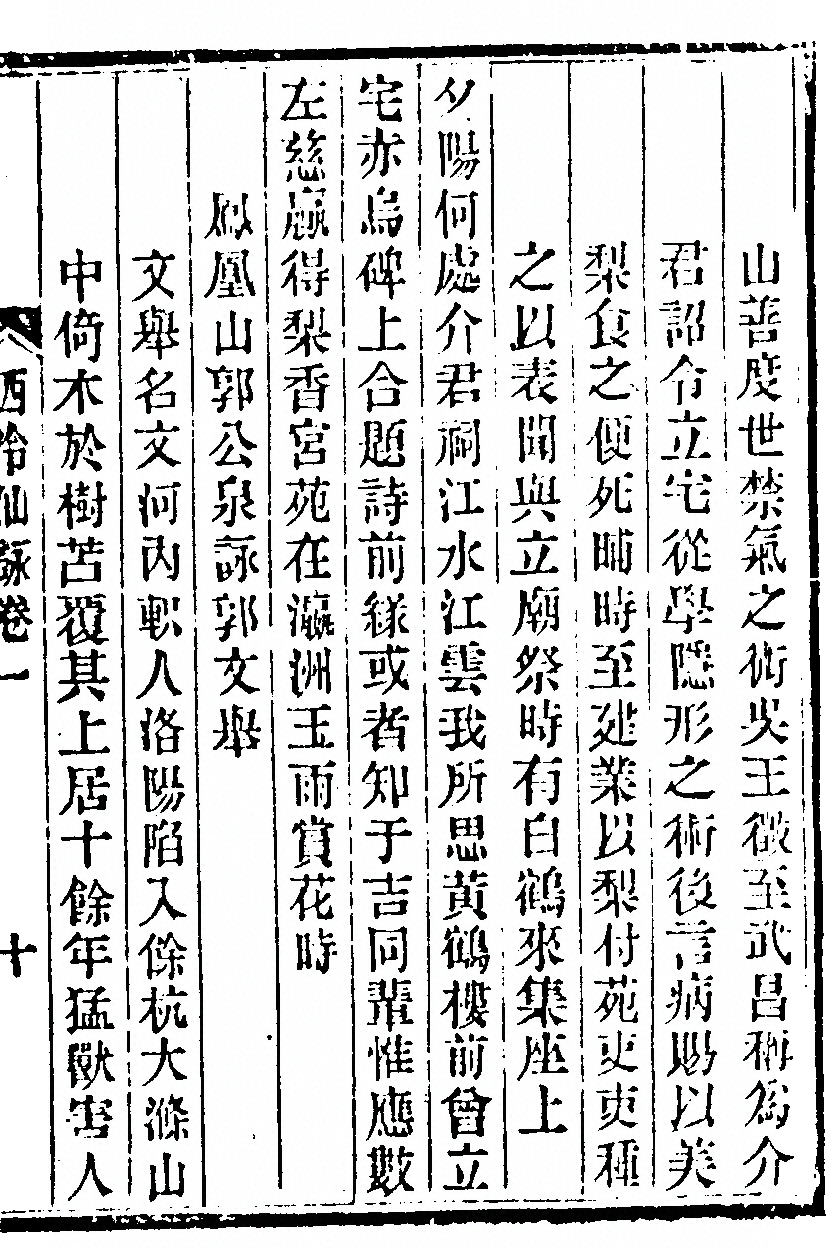 山善度世禁氣之術吳王徵至武昌稱爲介
君詔令立宅從學隱形之術後言病賜以美
梨食之便死晡時至建業以梨付苑吏吏種
之以表聞與立廟祭時有白鶴來集座上
夕陽何處介君祠江水江雲我所思黃鶴樓前曾立
宅赤烏碑上合題詩前緣或者知于吉同輩惟應數
左慈贏得梨香宮苑在瀛洲玉雨賞花時
鳳凰山郭公泉詠郭文舉
文舉名文河內軹人洛陽陷入餘杭大滌山
中倚木於樹苫覆其上居十餘年猛獸害人
西泠仙詠卷一
十